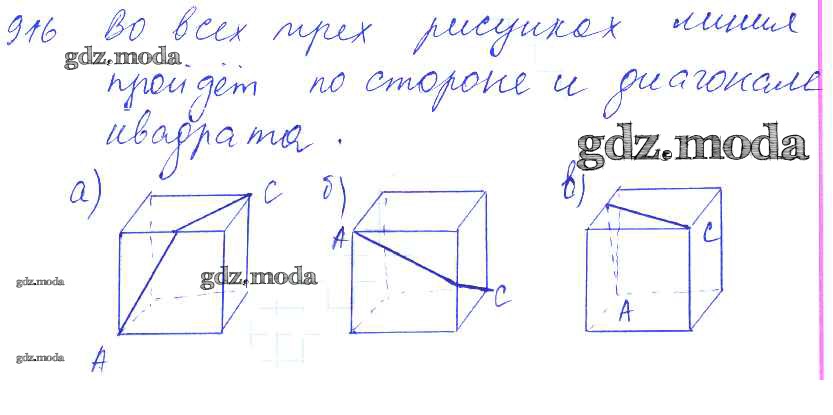 916 Во всех трех рисунках линия
gdz.moda
пройдёт по стороне и диагонале
квадрата.
gdz.moda
а) C б) в)
A C
gdz.moda gdz.moda C A
gdz.moda A